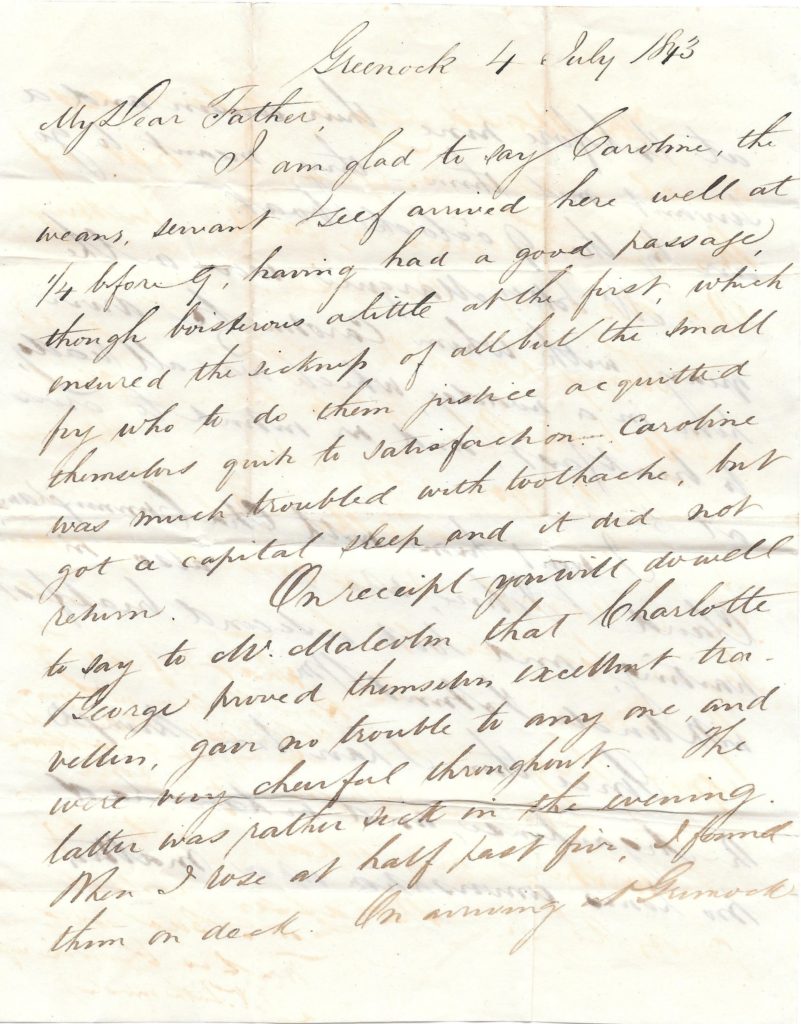 Greenock 4 July 1843
My Dear Father,
I am glad to say Caroline, the
weans, servant & self arrived here well at
1/4 bfore 9, having had a good passage,
though boisterous a little at the first, which
ensured the sickness of all but the small
fry who to do them justice acquitted
themselves quite to satisfaction – Caroline
was much troubled with toothache, but
got a capital sleep and it did not
return. On receipt you will do well
to say to Mr. Malcolm that Charlotte
& George proved themselves excellent tra-
vellers, gave no trouble to any one, and
were very cheerful throughout. The
latter was rather sick in the evening.
When I rose at half past five, I found
them on deck. On arriving at Greenock